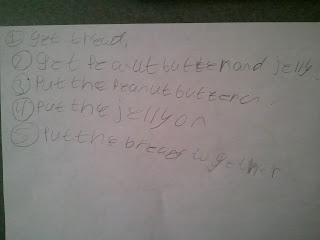 ① get bread,
② get peanut butter and jelly.
③ Put the peanut butter on.
④ Put the jelly on
⑤ Put the bread together